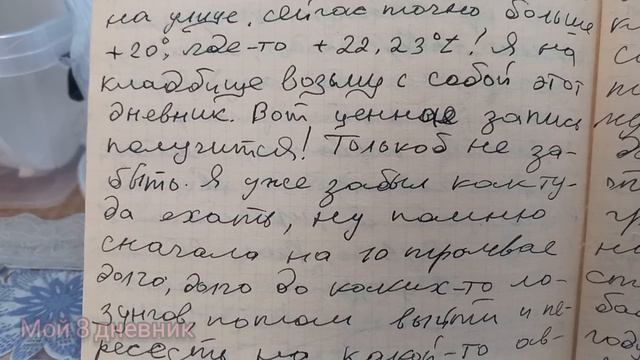 на улице, сейчас точно больше
+20°, где-то +22, 23°t! Я на
кладбище возьму с собой этот
дневник. Вот ценная запись
получится! Только б не за-
быть. Я уже забыл как ту-
да ехать, ну помню
сначала на 10 трамвае
долго, долго до каких-то ло-
зунгов, потом выйти и пе-
ресесть на какой-то ав-
Мой 8 дневник